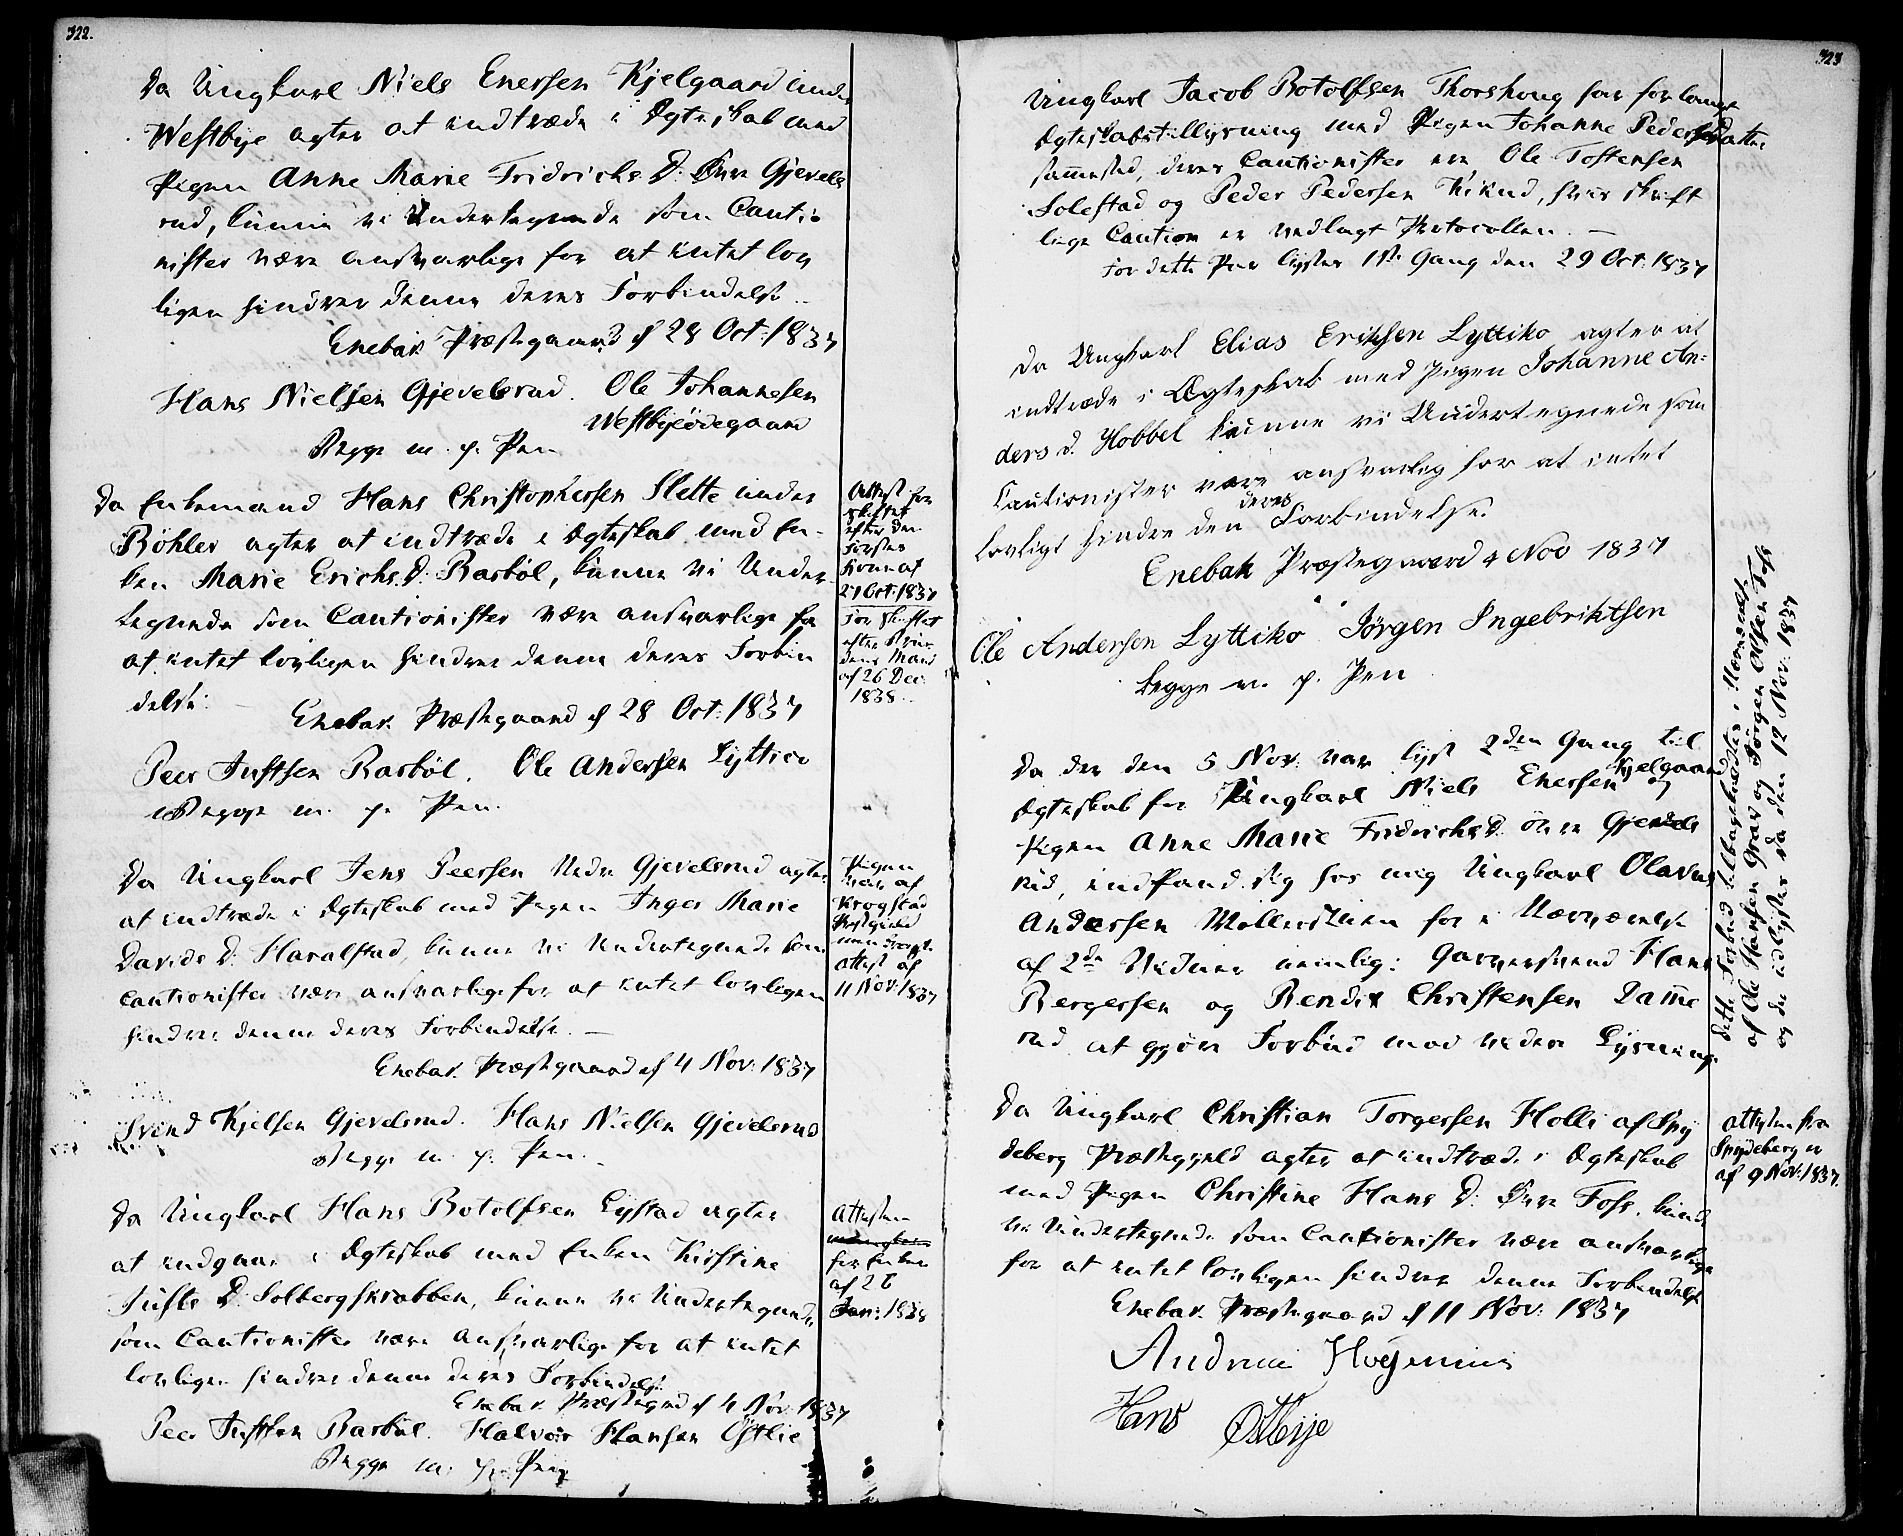 322.
Da Ungkarl Niels Enersen Kjelgaard under
Westbye agter at indtræde i Ægteskab med
Pigen Anne Marie Fridrichs D: Øvre Gjevels
rud, kunne vi Undertegnede som Cautio
nister være ansvarlige for at intet lov
ligen hindrer denne deres Forbindelse.
Enebak Præstegaard d 28 Oct: 1837
Hans Nielsen Gjevelsrud. Ole Johannesen
Westbyeødegaard
Begge m. p. Pen
Da Enkemand Hans Christophersen Slette under
Böhler agter at indtræde i Ægteskab med En-
ken Marie Erichs D: Barböl, kunne vi Under
tegnede som Cautionister være ansvarlige for
at intet lovligen hindrer denne deres Forbin
delse.
Enebak Præstegaard d 28 Oct: 1837
Peer Justsen Barböl. Ole Andersen Lyttico
Begge m. p. Pen.
Attest for
skiftet
efter den
første
Kone af
27 Oct: 1837
for skiftet
efter Bru
dens Mand
af 26 Dec:
1838.
Da Ungkarl Jens Peersen Nedre Gjevelsrud agter
at indtræde i Ægteskab med Pigen Inger Marie
Davids D: Haralstad, kunne vi Undertegnede som
Cautionister være ansvarlige for at intet lovligen
hindrer denne deres Forbindelse.
Enebak Præstegaard d 4 Nov: 1837
Svend Kjelsen Gjevelsrud. Hans Nielsen Gjevelsrud
Begge m. p. Pen.
Pigen
var af
Krogstad
Præstegield
Attest af
11 Nov: 1837
Da Ungkarl Hans Botolfsen Lystad agter
at indgaae i Ægteskab med Enken Kirstine
Justs D: Solbergskrabben, kunne vi Undertegnede
som Cautionister være ansvarlige for at intet
lovligen hindrer denne deres Forbindelse
Enebak Præstegrd d 4 Nov: 1837
Peer Justsen Barböl. Halvor Hansen Østlie
Begge m. p. Pen
Attesten
for Enken
af 26
Jan: 1838
323
Ungkarl Jacob Botolfsen Thorshoug har forlangt
Ægteskabstillysning med Pigen Johanne Pedersdatter
sammested, deres Cautionister ere Ole Tostensen
Solestad og Peder Pedersen Kiknd, hvis skrift
lige Caution er vedlagt Protocollen. —
For dette Par lystes 1ste Gang den 29 Oct: 1837
Da Ungkarl Elias Eriksen Lyttiko agter at
indtræde i Ægteskab med Pigen Johanne An=
ders d. Hobbel kunne vi Undertegnede som
Cautionister være ansvarlig for at intet
lovligt hindre den deres Forbindelse.
Enebak Præstegaard 4 Nov 1837
Ole Andersen Lyttiko Jørgen Ingebriktsen
begge m. p. Pen
Da der den 5 Nov: var lyst 2den Gang til
Ægteskab for Ungkarl Niels Enersen Kjelgaard og
Pigen Anne Marie Fridrichs D: Övre Gjevels
rud, indfand sig hos mig Ungkarl Olavus
Andersen Möllerstuen for i Nærværelse
af 2de Vidner nemlig: Garversvend Hans
Bergersen og Bendix Christensen Damme
rud at gjøre Forbud mod videre Lysning.
Dette Forbud tilbagekaldtes i Nærværelse
af Ole Hansen Grav og Jörgen Olsen Foss
og de udlystes da den 12 Nov: 1837
Da Ungkarl Christian Torgersen Holli af Spy
deberg Præstegjeld agter at indtræde i Ægteskab
med Pigen Christine Hans D: Øvre Foss, kunde
vi Undertegnede som Cautionister være ansvarlige
for at intet lovligen hindrer denne Forbindelse
Enebak Præstegaard d 11 Nov: 1837
Hans Østbye
Attesten fra
Spydeberg er
af 9 Nov: 1837.